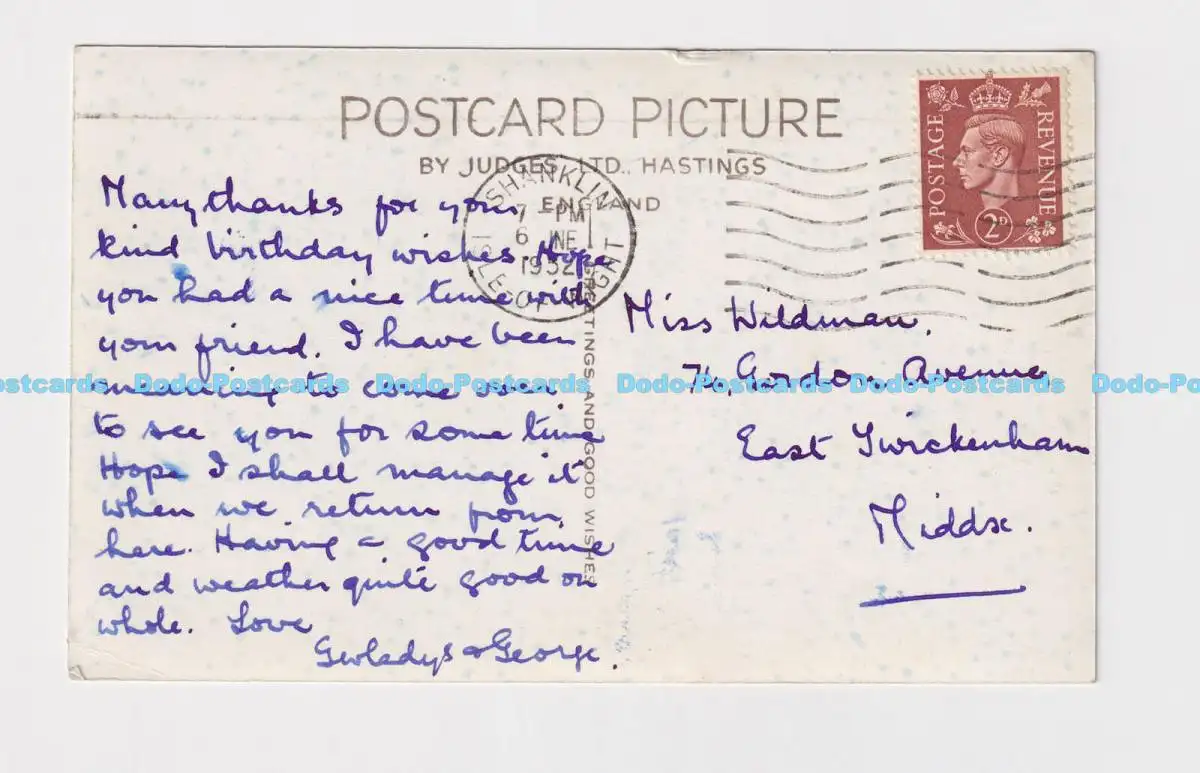 POSTCARD PICTURE
BY JUDGES, LTD., HASTINGS
ENGLAND
SHANKLIN
7 - PM
6 JNE
1952
ISLE OF WIGHT
POSTAGE
REVENUE
2D
Many thanks for your
kind birthday wishes Hope
you had a nice time with
your friend. I have been
meaning to come over
to see you for some time
Hope I shall manage it
when we return from
here. Having a good time
and weather quite good on
whole. Love
Gwladys & George.
GREETINGS AND GOOD WISHES
Miss Wildman,
74, Gordon Avenue
East Twickenham
Middx.
Dodo-Postcards Dodo-Postcards Dodo-Postcards Dodo-Postcards